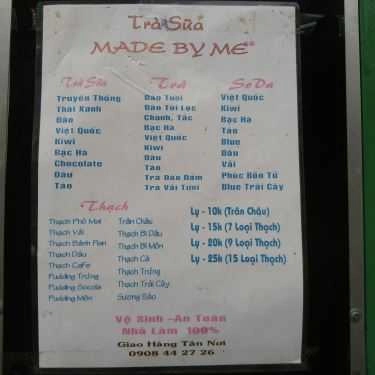 Trà Sữa
MADE BY ME
Trà Sữa
Truyền Thống
Thái Xanh
Đào
Việt Quốc
Kiwi
Bạc Hà
Chocolate
Dâu
Táo
Trà
Đào Tươi
Đào Túi Lọc
Chanh, Tắc
Bạc Hà
Việt Quốc
Kiwi
Dâu
Táo
Trà Đào Dầm
Trà Vải Tươi
SoDa
Việt Quốc
Kiwi
Bạc Hà
Táo
Blue
Dâu
Vải
Phúc Bồn Tử
Blue Trái Cây
Thạch
Thạch Phô Mai
Thạch Vải
Thạch Bánh Flan
Thạch Dâu
Thạch CaFe
Pudding Trứng
Pudding Socola
Pudding Môn
Trân Châu
Thạch Bí Dâu
Thạch Bí Môn
Thạch Cá
Thạch Trứng
Thạch Trái Cây
Sương Sáo
Ly - 10k (Trân Châu)
Ly - 15k (7 Loại Thạch)
Ly - 20k (9 Loại Thạch)
Ly - 25k (15 Loại Thạch)
Vệ Sinh - An Toàn
Nhà Làm 100%
Giao Hàng Tận Nơi
0908 44 27 26